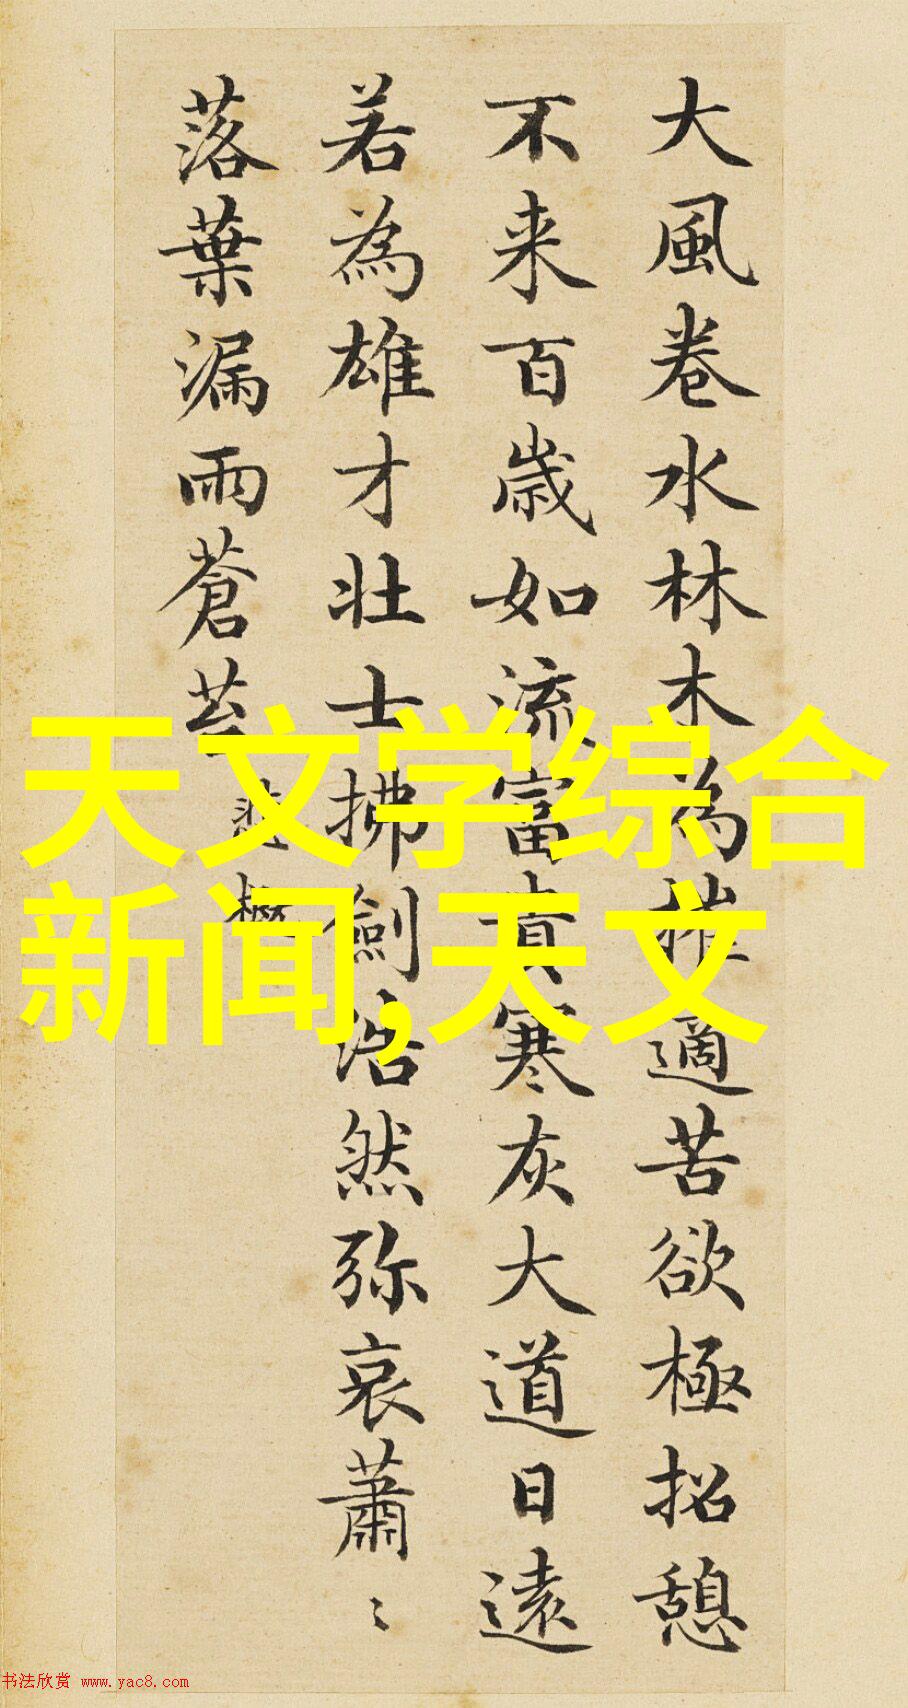 大風卷水林木為摧適苦欲極招憩
不来百歲如流富貴寒灰大道日遠
若為雄才壯士拂劍浩然弥哀蕭〻
落葉漏雨蒼苔
悲慨
天文学综合
新闻,天文
书法欣赏 www.yac8.com